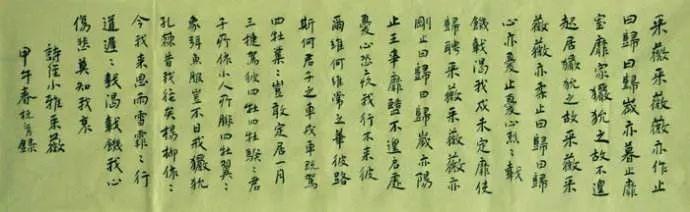 采薇采薇薇亦作止
曰歸曰歸歲亦暮止靡
室靡家玁狁之故不遑
起居玁狁之故采薇采
薇薇亦柔止曰歸曰歸
心亦憂止憂心烈〻載
飢載渴我戍未定靡使
歸聘采薇采薇薇亦
剛止曰歸曰歸歲亦陽
止王事靡盬不遑啟處
憂心孔疚我行不來彼
爾維何維常之華彼路
斯何君子之車戎車既駕
四牡業〻豈敢定居一月
三捷駕彼四牡四牡騤〻君
子所依小人所腓四牡翼〻
象弭魚服豈不日戒玁狁
孔棘昔我往矣楊柳依〻
今我來思雨雪霏〻行
道遲〻載渴載飢我心
傷悲莫知我哀
詩經小雅采薇
甲午春錄